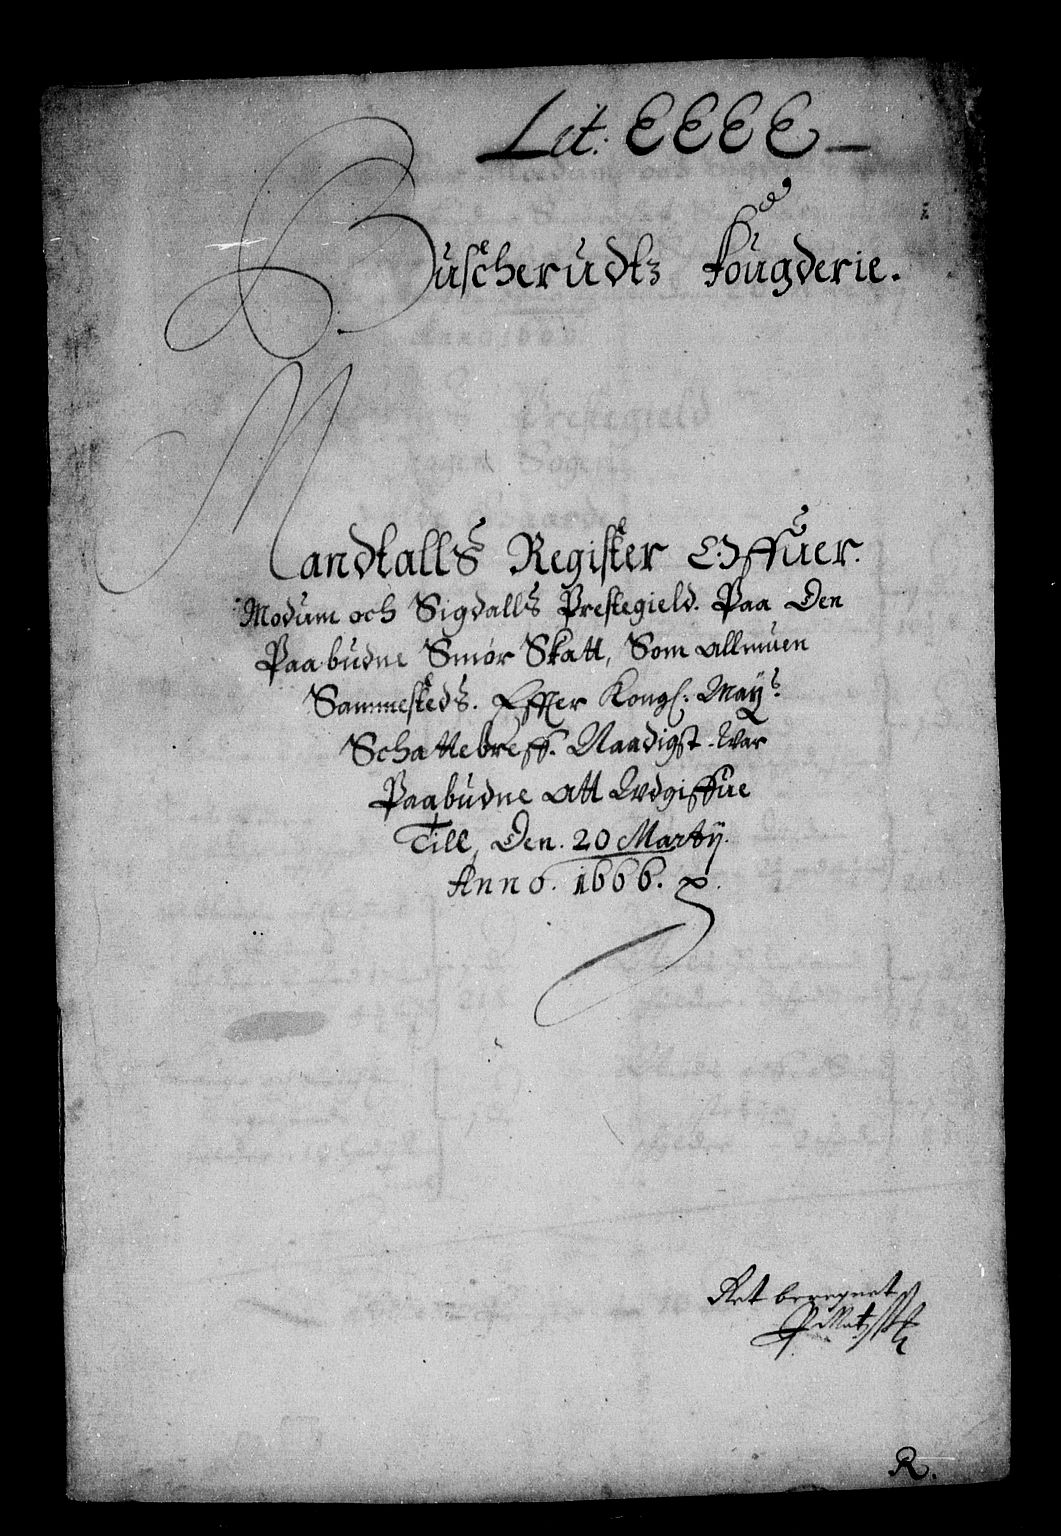 Lit: EEEE
Buscherudtz fougderie.
Mandtalls Register Offuer.
Modum och Sigdalls Prestegield. Paa Den
Paabudne Smør Skatt, Som allmuen
Sammesteds. Effter Kongl: Mayˢ.
Schattebreff. Naadigst. War
Paabudne att Wdgiffue
Till, Den. 20 Martij.
Anno. 1666.
Ret beregnet
R.